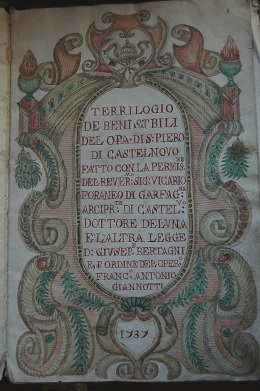 TERRILOGIO
DE BENI STBILI
DEL OPA · DI S · PIERO
DI CASTELNOVO
FATTO CON LA PERMIS.NE
DEL REVER.MO SIG: VICARIO
FORANEO DI GARFAG.NA
ARCIPR.TE DI CASTEL.VO
DOTTORE DELUNA
E L'ALTRA LEGGE
D: GIUSEP.E BERTAGNI
E, F ORDINE DEL OPER.
FRANC.O ANTONIO
GIANNOTTI
1737